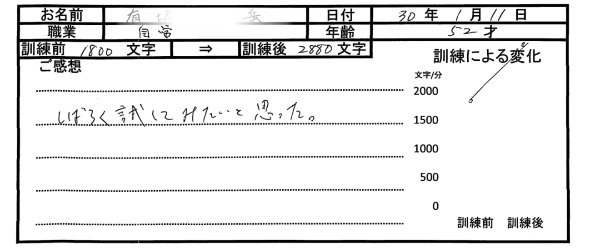 お名前 有 岳 日付 30年1月11日
職業 自営 年齢 52才
訓練前 1800 文字 ⇒ 訓練後 2880 文字
ご感想
訓練による変化
文字/分
2000
しばらく試してみたいと思った。
1500
1000
500
0
訓練前 訓練後